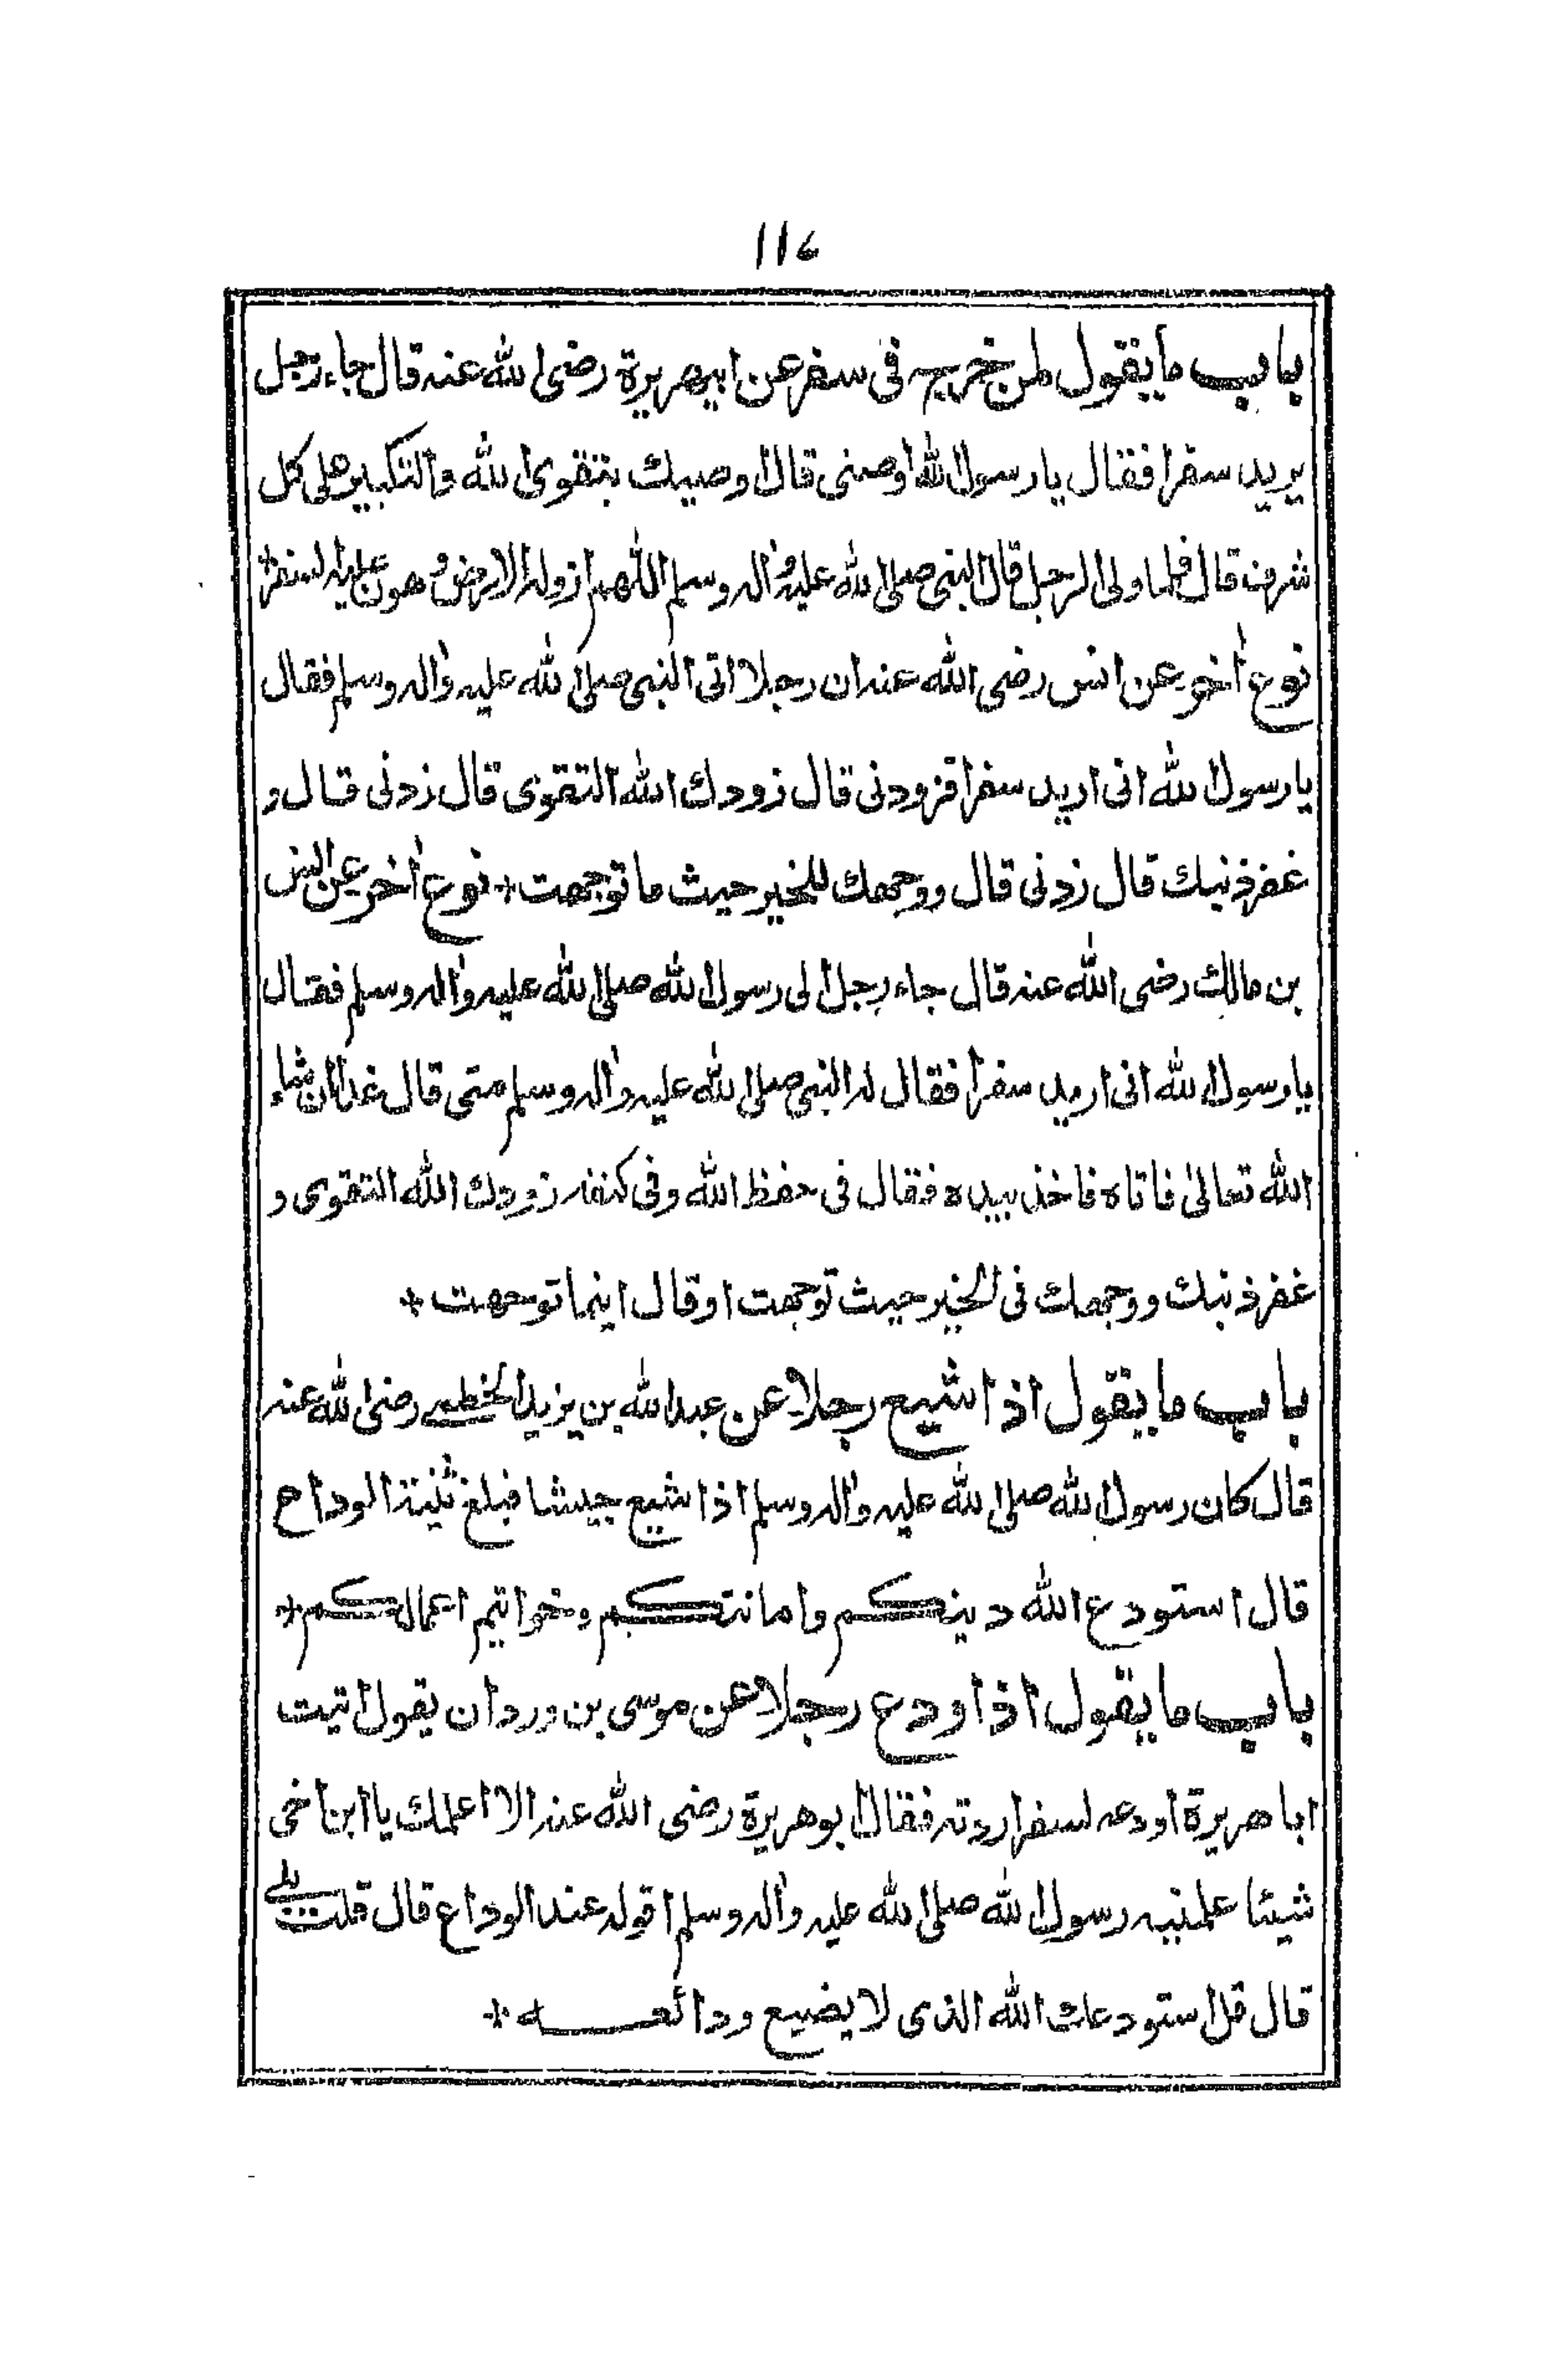 ۱۱۶
باب ما يقول لمن خرج فى سفر عن ابى هريرة رضى الله عنه قال جاء رجل
يريد سفرا فقال يا رسول الله اوصنى قال اوصيك بتقوى الله والتكبير على كل
شرف قال فلما ولى الرجل قال النبى صلى الله عليه واله وسلم اللهم ازو له الارض وهون عليه السفر *
نوع اخر عن انس رضى الله عنه ان رجلا اتى النبى صلى الله عليه واله وسلم فقال
يا رسول الله انى اريد سفرا فزودنى قال زودك الله التقوى قال زدنى قال و
غفر ذنبك قال زدنى قال ووجهك للخير حيث ما توجهت * نوع اخر عن انس
بن مالك رضى الله عنه قال جاء رجل الى رسول الله صلى الله عليه واله وسلم فقال
يا رسول الله انى اريد سفرا فقال له النبى صلى الله عليه واله وسلم متى قال غدا ان شاء
الله تعالى فاتاه فاخذ بيده فقال فى حفظ الله وفى كنفه زودك الله التقوى و
غفر ذنبك ووجهك فى الخير حيث توجهت او قال اينما توجهت *
باب ما يقول اذا شيع رجلا عن عبد الله بن يزيد الخطمى رضى الله عنه
قال كان رسول الله صلى الله عليه واله وسلم اذا شيع جيشا فبلغ ثنية الوداع
قال استودع الله دينكم وامانتكم وخواتيم اعمالكم *
باب ما يقول اذا ودع رجلا عن موسى بن وردان يقول اتيت
ابا هريرة اودعه لسفر اردته فقال ابو هريرة رضى الله عنه الا اعلمك يا ابن اخى
شيئا علمنيه رسول الله صلى الله عليه واله وسلم اقوله عند الوداع قال قلت بلى
قال قل استودعك الله الذى لا يضيع ودائعه *